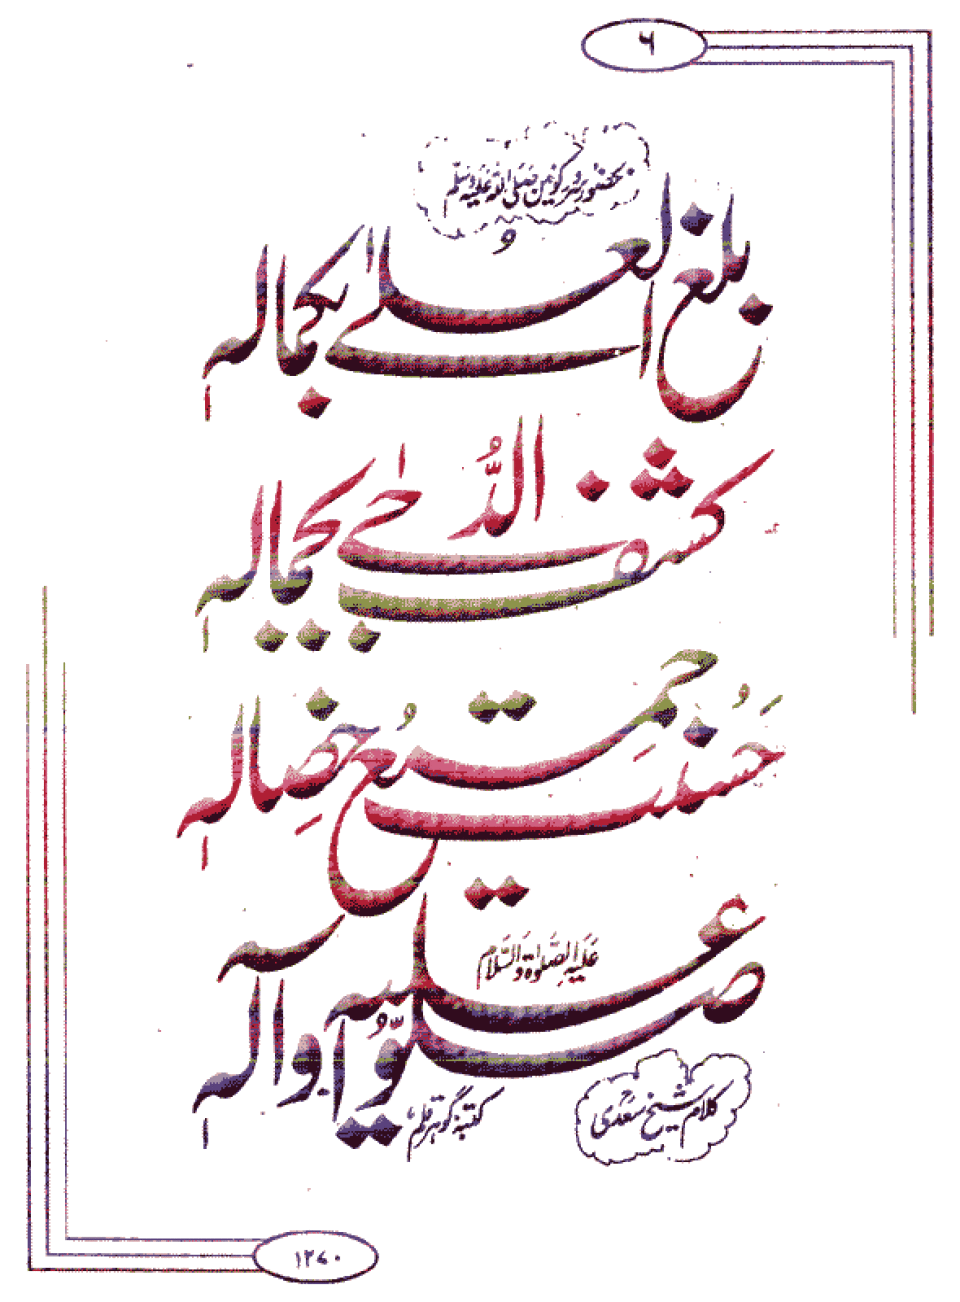 ۶
بحضور سرور کونین صَلَّی اللّٰہُ عَلَیْہِ وَسَلَّم
بلغ العلےٰ بکمالہ
کشف الدُّجےٰ بجمالہ
حَسُنَت جمیعُ خِصالہ
عَلَیْہِ الصَّلوٰۃ وَالسَّلَام
صلّوا علیہ وآلہ
کلام شیخ سعدی
کتبہٗ گوہر قلم
۱۲۷۰